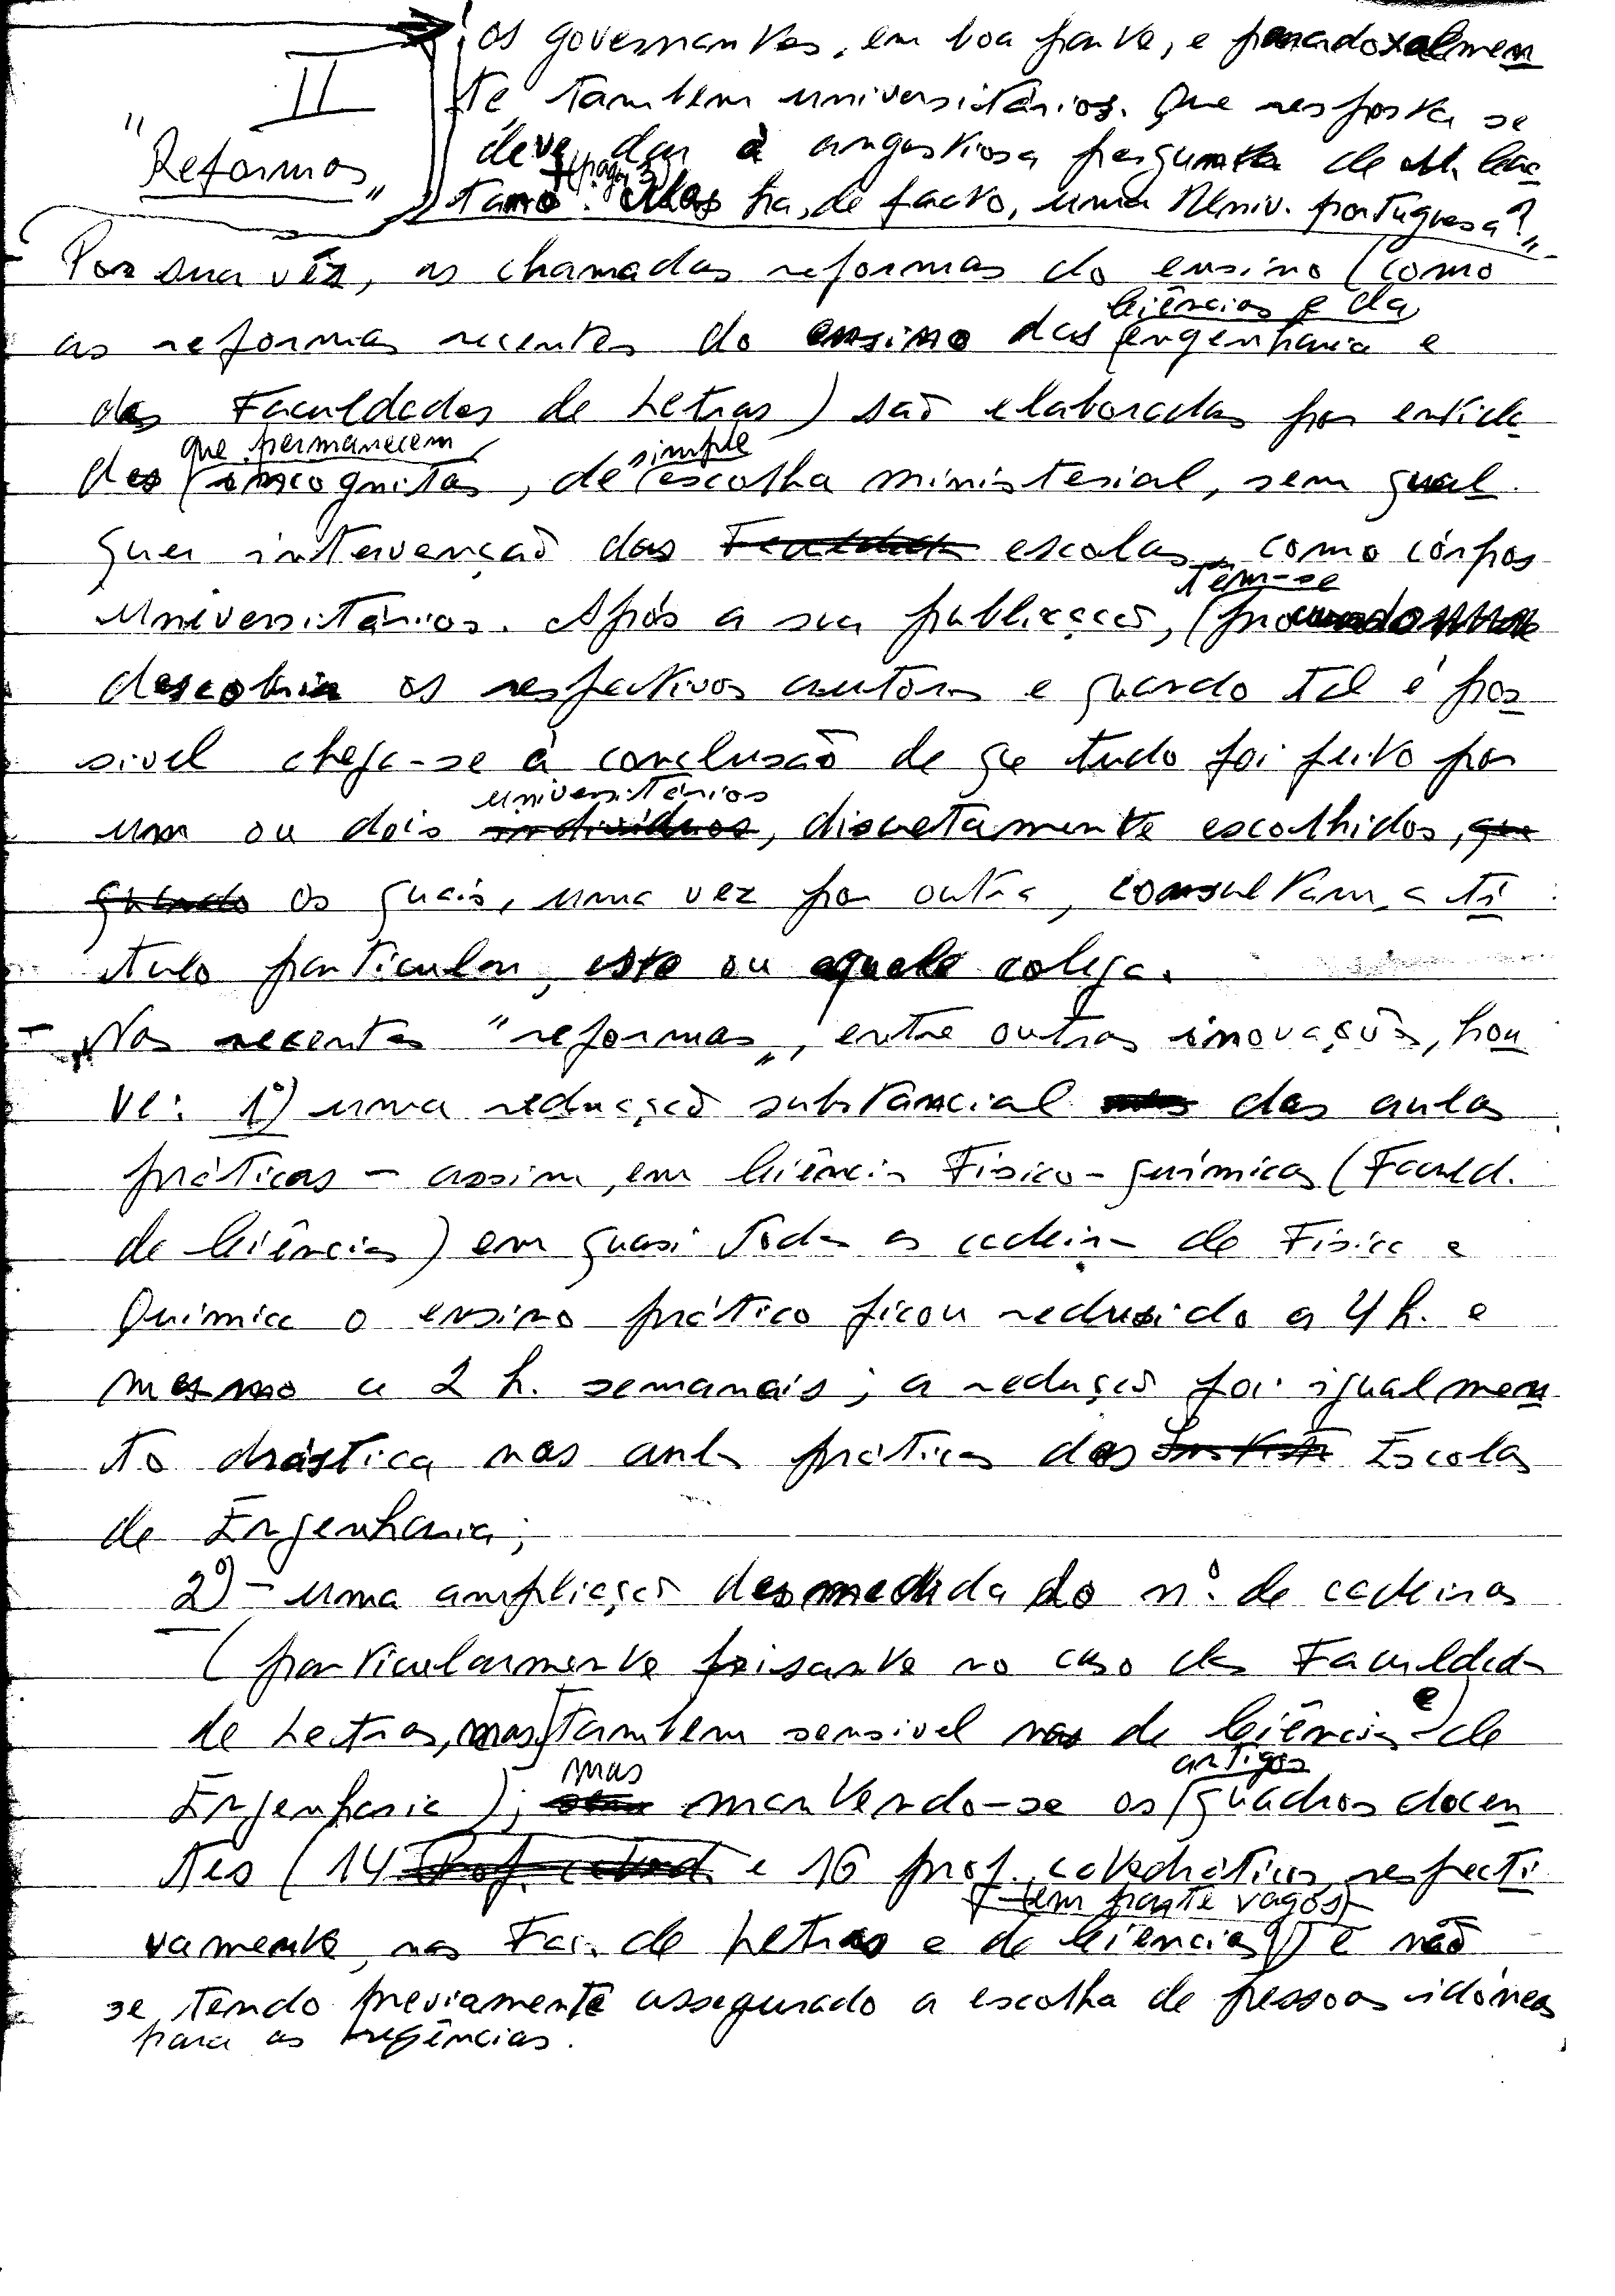 os governantes, em boa parte, e paradoxalmen
te, tambem universitários. Que resposta se
II
deve dar à angustiosa pergunta de M. Cae
"Reformas"
(pag. 3)
tano: Mas ha, de facto, uma Univ. portuguesa?"
- Por sua vês, as chamadas reformas do ensino (como
Ciências e da
as reformas recentes do ensino das engenharia e
das Faculdades de Letras) são elaboradas por entida
que permanecem simple
des incognitas, de escolha ministerial, sem qual
quer intervenção das escolas, como córpos
têm-se
Universitários. Após a sua publicação,
descobrir os respectivos autores e quando tal é pos
sivel chega-se à conclusão de qe tudo foi feito por
universitários
um ou dois individuos, discretamente escolhidos, que
quando os quais, uma vez por outra, consultam, a tí
tulo particular, este ou aquele colega.
- Nas recentes "reformas", entre outras inovações, hou
ve: 1º) uma redução substancial das aulas
práticas - assim, em Ciências Físico-químicas (Faculd.
de Ciências) em quasi todas as cadeiras de Física e
Química o ensino prático ficou reduzido a 4 h. e
mesmo a 2 h. semanais; a redução foi igualmen
te drástica nas aulas práticas das Escolas
de Engenharia;
2º) - uma ampliação desmedida do nº. de cadeiras
(particularmente frisante no caso das Faculdades
de Letras, mas tambem sensivel nas de Ciências e de
mas antigos
Engenharia); mantendo-se os quadros docen
tes (14 Prof. cated. e 16 prof. catedráticos, respecti
(em parte vagos)
vamente, nas Fac. de Letras e de Ciências) e não
se tendo previamente assegurado a escolha de pessoas idóneas
para as regências.